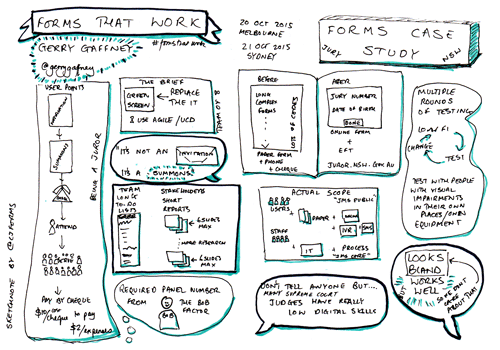 FORMS THAT WORK
GERRY GAFFNEY
@gerrygaffney
#formsthatwork
20 OCT 2015
MELBOURNE
21 OCT 2015
SYDNEY
FORMS CASE
STUDY
JURY
NSW
USER POINTS
SUMMONS
ATTEND
PAY BY CHEQUE
cheque to pay
BEING A JUROR
SKETCHNOTE BY @CJFORMS
THE BRIEF
GREEN
SCREEN
REPLACE
THE IT
& USE AGILE / UCD
"IT'S NOT AN INVITATION
IT'S A SUMMONS
TEAM
LONG
TO-DO
LISTS
STAKEHOLDERS
SHORT
REPORTS
6 SLIDES
MAX
MORE RESEARCH
6 SLIDES
MAX
REQUIRED PANEL NUMBER
FROM
THE BOB
FACTOR
BOB
BEFORE
LONG
COMPLEX
FORMS
PAPER FORM
+ PHONE
+ CHEQUE
AFTER
JURY NUMBER
DATE OF BIRTH
DONE
ONLINE FORM
+
EFT
JUROR.NSW.GOV.AU
ACTUAL SCOPE
"JMS PUBLIC"
USERS
PAPER
IVR
SMS
STAFF
IT
+ PROCESS
"JMS CORE"
DON'T TELL ANYONE BUT...
MANY SUPREME COURT
JUDGES HAVE REALLY
LOW DIGITAL SKILLS
MULTIPLE
ROUNDS
OF TESTING
LO FI
CHANGE
TEST
TEST WITH PEOPLE
WITH VISUAL
IMPAIRMENTS
IN THEIR OWN
PLACES/OWN
EQUIPMENT
LOOKS
BLAND
BUT
WORKS
WELL